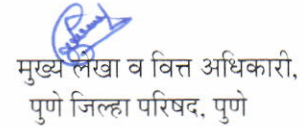 मुख्य लेखा व वित्त अधिकारी,
पुणे जिल्हा परिषद, पुणे